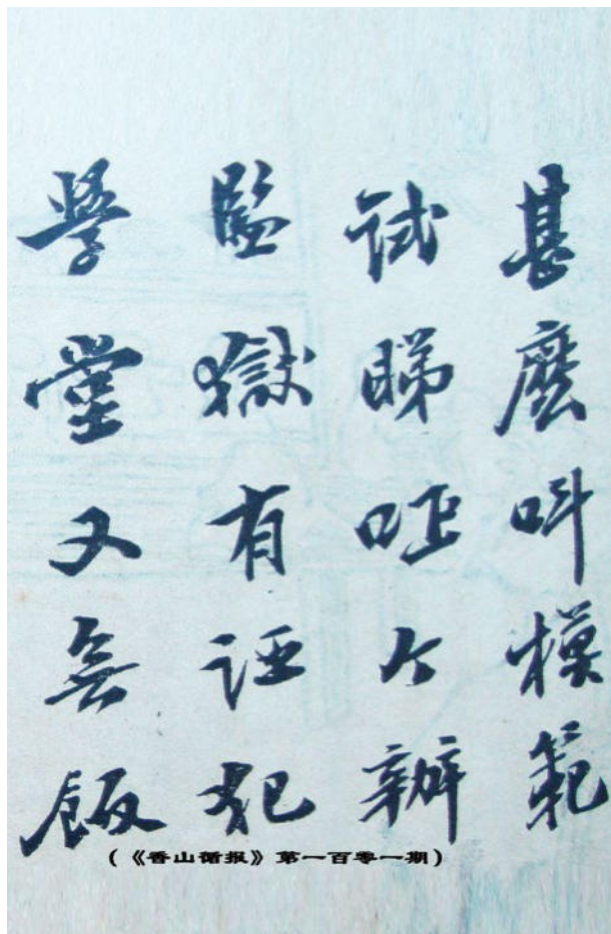 甚麼叫模範
試睇个辦
監獄有誣犯
學堂又無飯
（《香山循报》第一百零一期）